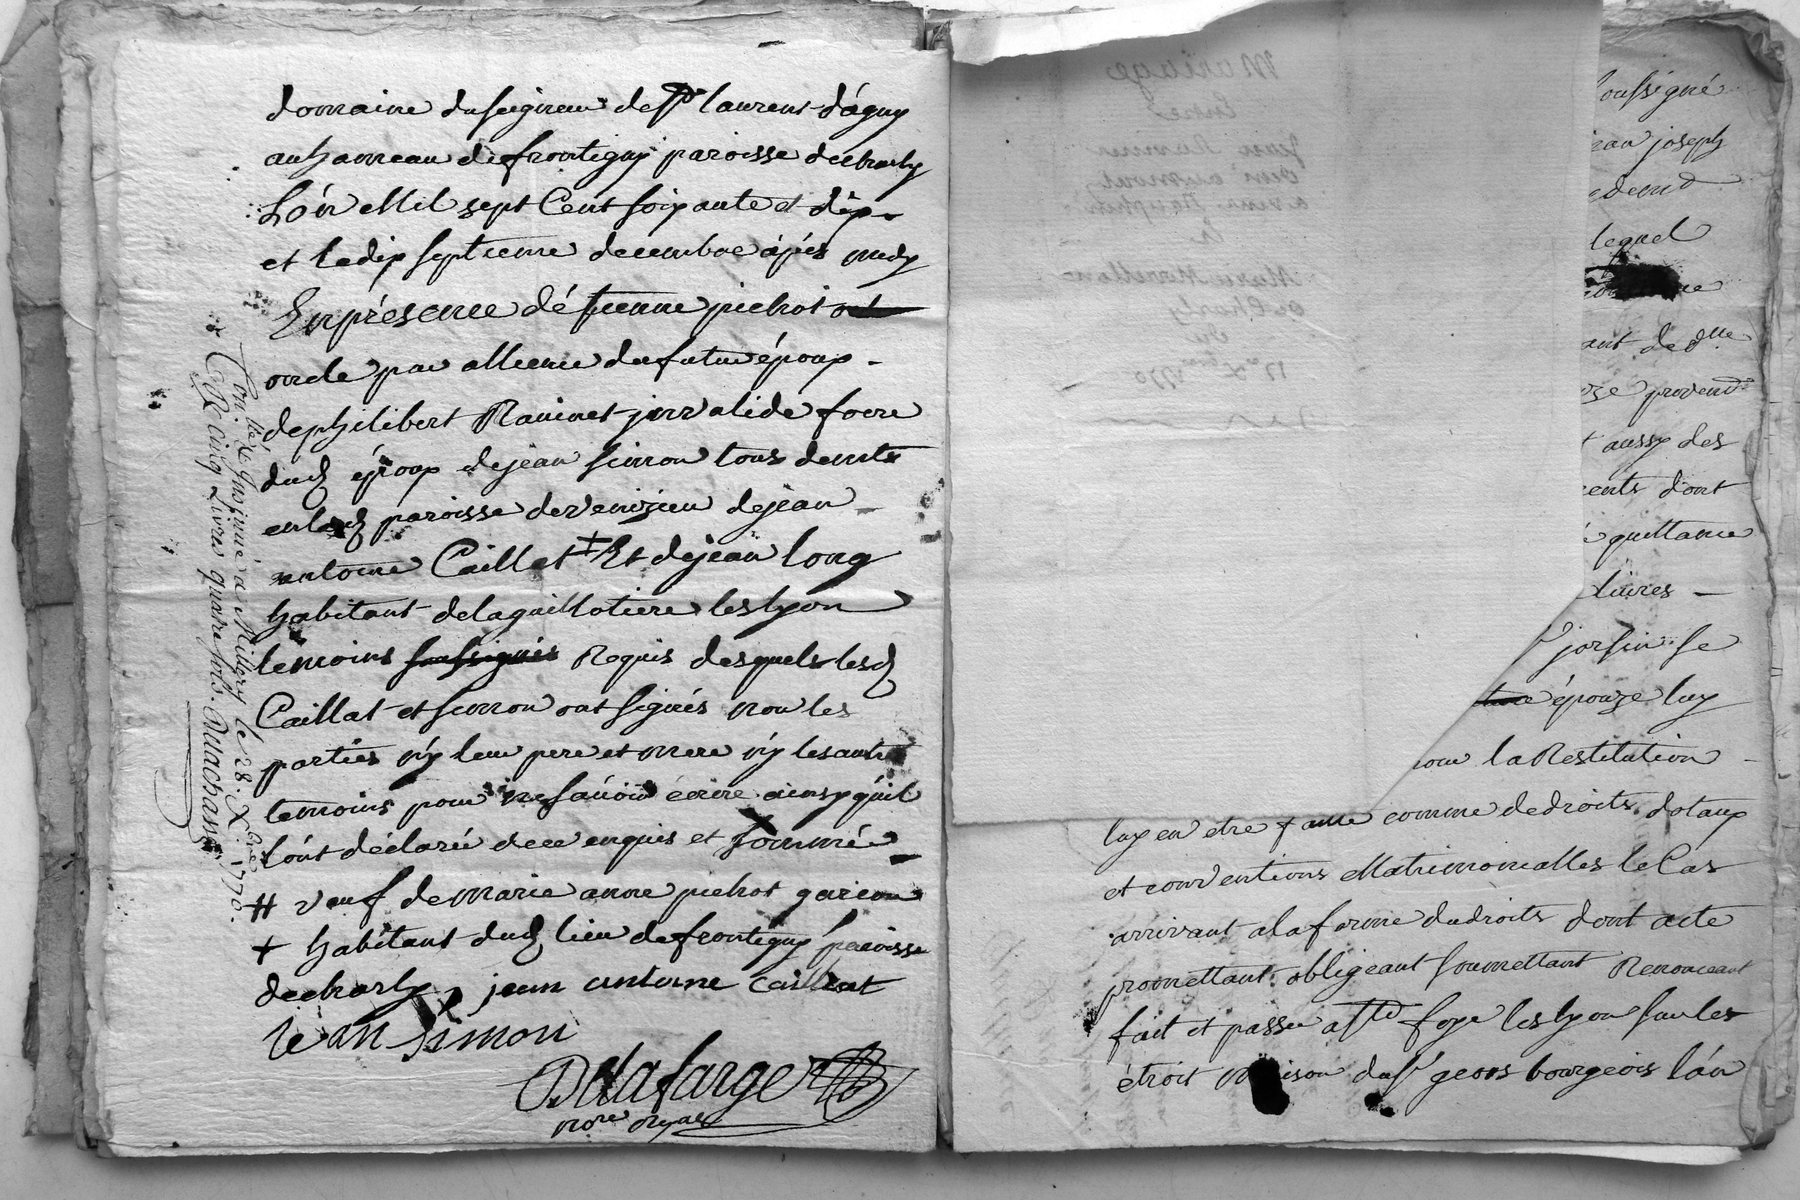 domaine du seigneur de St laurens d'agny
au hameau de frontigny paroisse de charly
L'an Mil sept Cent soixante et dix
et le dix septieme decembre après midy
En présence d'étienne pichot
oncle par alliance du futur époux
de philibert Ravinet invalide frere
dud époux de jean simon tous demts
en lad paroisse de venisieu de jean
antoine Caillat + Et de jean long
habitant de la guillotiere les lyon
temoins soussignés Requis desquels lesd
Caillat et simon ont signés non les
parties n'y leur pere et mere n'y les autres
temoins pour ne sávoir écrire ainsy quil
lónt déclaré de ce enquis et sommé
# veuf de marie anne pichot garçon
+ habitant dud lieu de frontigny paroisse
de charly jean antoine caillat
jean Simon
Delafarge
nore royal
Con.lé & Insinué à Millery le 28. Xbre 1770.
R. cinq Livres quatre sols. Dulachassagne
Mariage
Entre
Jean Ravinet
&
Marie
de Charly
du
17 Xbre 1770
soussigné
jean joseph
lequel
ant de dlle
provend
t aussy des
cents dont
quittance
livres
jorsin se
épouze luy
pour la Restitution
luy en etre faitte comme de droits dotaux
et conventions Matrimonialles le Cas
arrivant a la forme du droits dont acte
promettant obligeant soumettant Renonceant
fait et passé a Ste foye les lyon sur les
étroit maison du sr geors bourgeois l'án